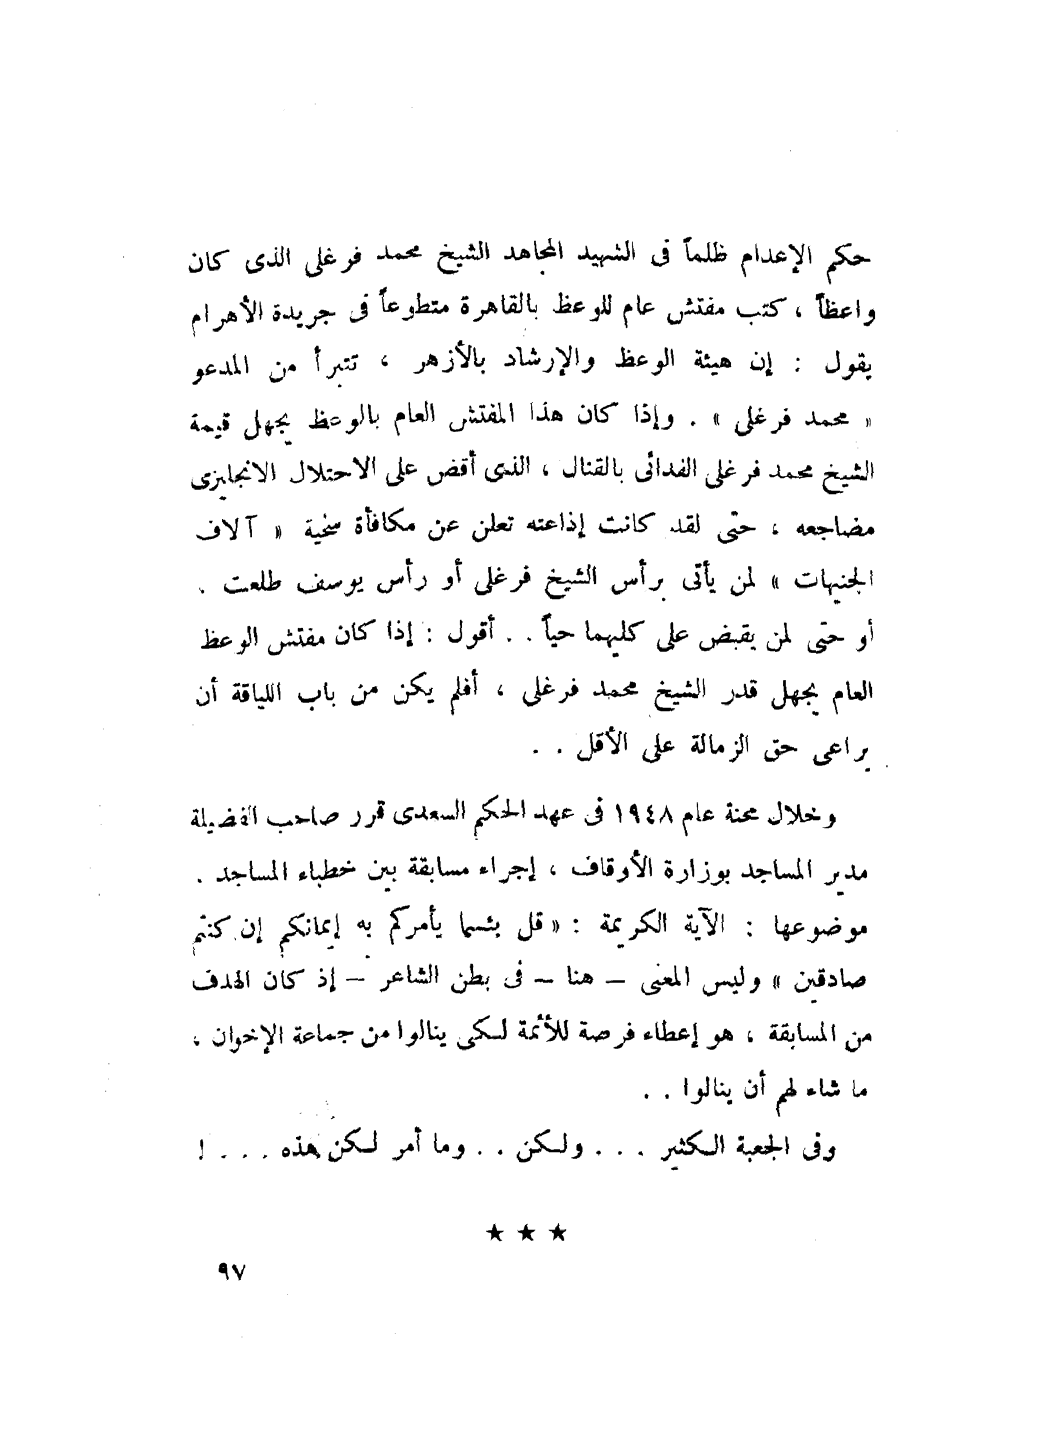 حكم الإعدام ظلماً فى الشهيد المجاهد الشيخ محمد فرغلى الذى كان
واعظاً ، كتب مفتش عام للوعظ بالقاهرة متطوعاً فى جريدة الأهرام
يقول : إن هيئة الوعظ والإرشاد بالأزهر ، تتبرأ من المدعو
« محمد فرغلى » . وإذا كان هذا المفتش العام بالوعظ يجهل قيمة
الشيخ محمد فرغلى الفدائى بالقنال ، الذى أقض على الاحتلال الانجليزى
مضاجعه ، حتى لقد كانت إذاعته تعلن عن مكافأة سخية « آلاف
الجنيهات » لمن يأتى برأس الشيخ فرغلى أو رأس يوسف طلعت .
أو حتى لمن يقبض على كليهما حياً . . أقول : إذا كان مفتش الوعظ
العام يجهل قدر الشيخ محمد فرغلى ، أفلم يكن من باب اللياقة أن
يراعى حق الزمالة على الأقل . .
وخلال محنة عام ١٩٤٨ فى عهد الحكم السعدى قرر صاحب الفضيلة
مدير المساجد بوزارة الأوقاف ، إجراء مسابقة بين خطباء المساجد .
موضوعها : الآية الكريمة : « قل بئسما يأمركم به إيمانكم إن كنتم
صادقين » وليس المعنى – هنا – فى بطن الشاعر – إذ كان الهدف
من المسابقة ، هو إعطاء فرصة للأئمة لكى ينالوا من جماعة الإخوان ،
ما شاء لهم أن ينالوا . .
وفى الجعبة الكثير . . . ولكن . . وما أمر لكن هذه . . . !
★ ★ ★
٩٧